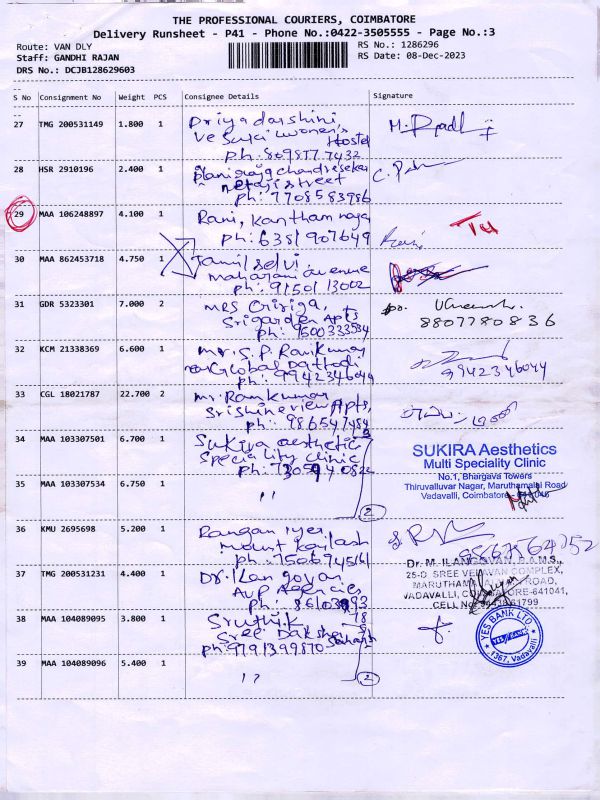 THE PROFESSIONAL COURIERS, COIMBATORE
Delivery Runsheet - P41 - Phone No.:0422-3505555 - Page No.:3
Route: VAN DLY
RS No.: 1286296
Staff: GANDHI RAJAN
RS Date: 08-Dec-2023
DRS No.: DCJB128629603
S No Consignment No Weight PCS Consignee Details Signature
27 TMG 200531149 1.800 1 Priyadarshini,
Hostel
28 HSR 2910196 2.400 1
netaji street
ph: 7708583986
29 MAA 106248897 4.100 1 Rani, Kantham nagar
ph: 6381907649
30 MAA 862453718 4.750 1 Tamil selvi
maharani avenue
ph: 9150113002
31 GDR 5323301 7.000 2 mrs
Srigarden Apts
ph: 9500333534 8807780836
32 KCM 21338369 6.600 1 mr. S. P. Ramkumar
Global
ph: 9942346044 9942346044
33 CGL 18021787 22.700 2 mr. Ramkumar
Srishineview Apts,
ph: 986547484
34 MAA 103307501 6.700 1 Sukira aesthetic
Speciality clinic
SUKIRA Aesthetics
Multi Speciality Clinic
No.1, Bhargava Towers
Thiruvalluvar Nagar, Maruthamalai Road
Vadavalli, Coimbatore
35 MAA 103307534 6.750 1 ''
2
36 KMU 2695698 5.200 1 Rangan iyer
mount kailash
ph: 7506745161
37 TMG 200531231 4.400 1 Dr. Ilangovan
AVP Agencies
Dr. M. ILANGOVAN, B.A.M.S.,
25-D, SREE VELAVAN COMPLEX,
MARUTHAMALAI ROAD,
VADAVALLI, COIMBATORE-641041,
38 MAA 104089095 3.800 1 Sruthik
Sree Daksha
ph: 9791399870
YES BANK LTD
1367, Vadavalli
39 MAA 104089096 5.400 1 ''
2